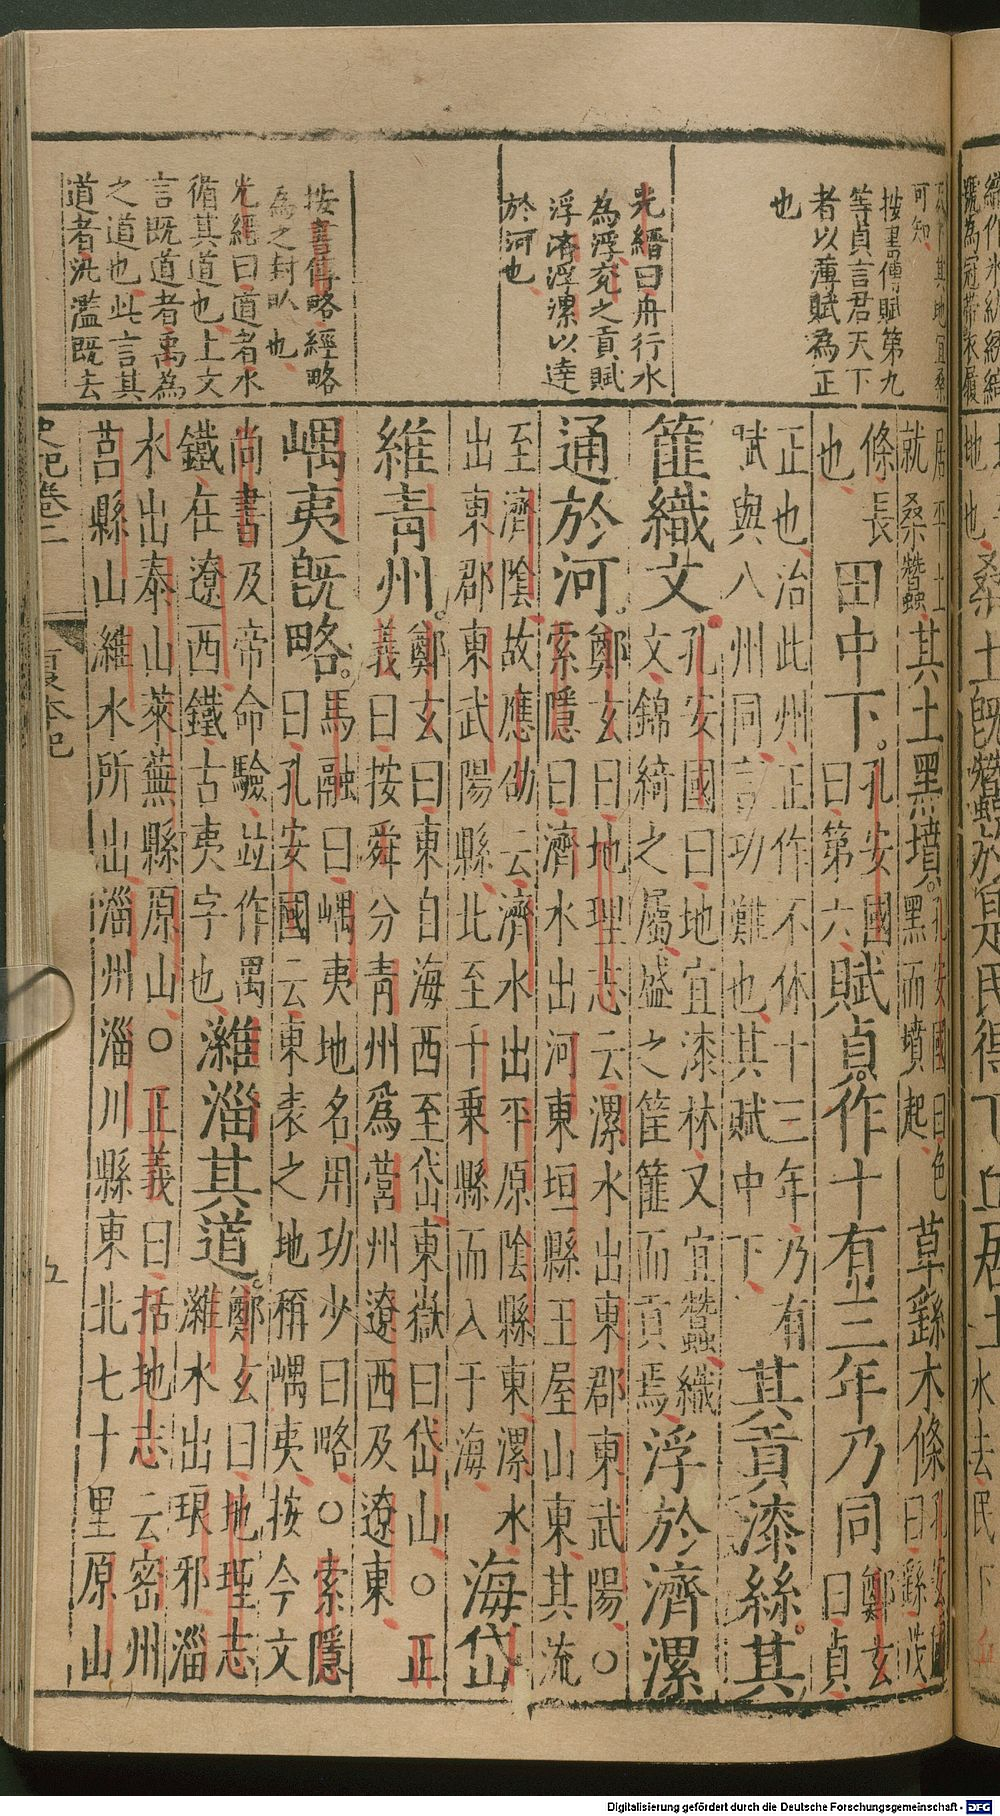 可知
按書傳賦第九
等貞言君天下
者以薄賦為正
也
光縉曰舟行水
為浮兖之貢賦
浮濟浮漯以達
於河也
按書傳略經略
為之封畎也
光縉曰道者水
循其道也上文
言既道者禹為
之道也此言其
道者汎濫既去
居平土
就桑蠶
其土黑墳
孔安國曰色
黑而墳起
草繇木條
孔安國
曰繇茂
條長
也
田中下
孔安國
曰第六
賦貞作十有三年乃同
鄭玄
曰貞
正也治此州正作不休十三年乃有
賦與八州同言功難也其賦中下
其貢漆絲其
篚織文
孔安國曰地宜漆林又宜蠶織
文錦綺之屬盛之筐篚而貢焉
浮於濟漯
通於河
鄭玄曰地理志云漯水出東郡東武陽○
索隱曰濟水出河東垣縣王屋山東其流
至濟陰故應劭云濟水出平原陰縣東漯水
出東郡東武陽縣北至千乘縣而入于海
海岱
維青州
鄭玄曰東自海西至岱東嶽曰岱山○正
義曰按舜分青州爲營州遼西及遼東
嵎夷既略
馬融曰嵎夷地名用功少曰略○索隱
曰孔安國云東表之地稱嵎夷按今文
尚書及帝命驗並作禺
鐵在遼西鐵古夷字也
濰淄其道
鄭玄曰地理志
濰水出琅邪淄
水出泰山萊蕪縣原山○正義曰括地志云密州
莒縣山濰水所出淄州淄川縣東北七十里原山
史記卷二
夏本紀
五
Digitalisierung gefördert durch die Deutsche Forschungsgemeinschaft - DFG